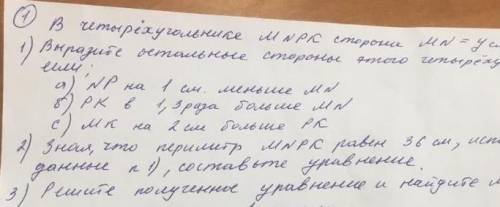 ① В четырёхугольнике MNPK сторона MN = y см
1) Выразите остальные стороны этого четырёху
если:
а) NP на 1 см. меньше MN
б) PK в 1,3 раза больше MN
с) MK на 2 см больше PK
2) Зная, что периметр MNPK равен 36 см, исп
данные п 1), составьте уравнение.
3) Решите полученное уравнение и найдите